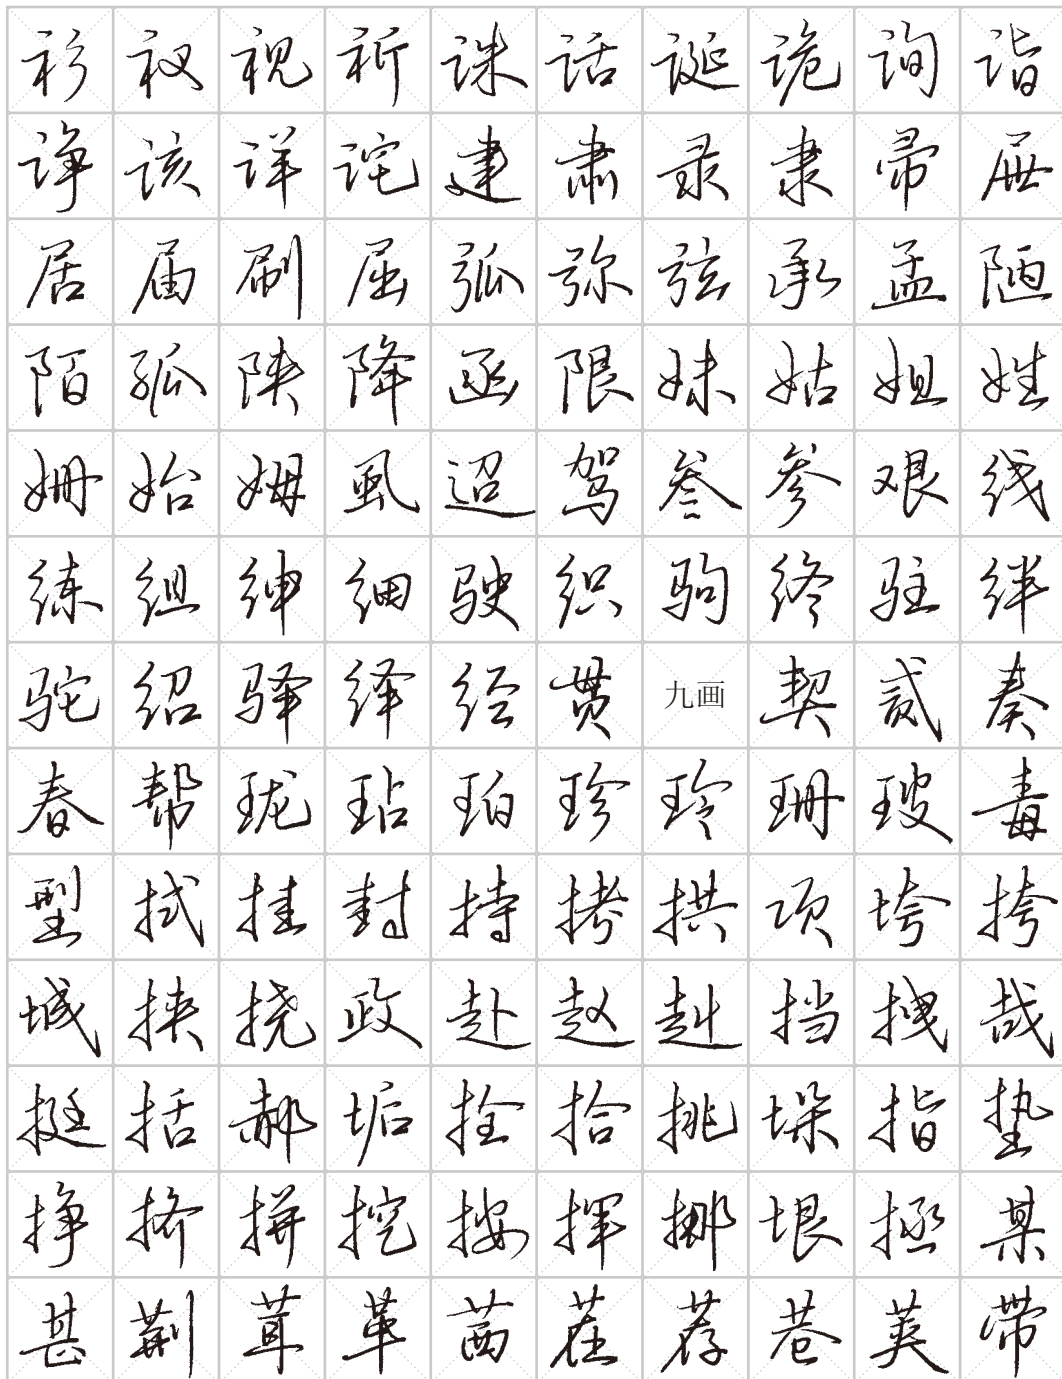 衫衩视祈诛话诞诡询诣
诤该详诧建肃录隶帚屉
居届刷屈弧弥弦承孟陋
陌孤陕降函限妹姑姐姓
姗始姆虱迢驾叁参艰线
练组绅细驶织驹终驻绊
驼绍驿绎经贯九画契贰奏
春帮珑玷珀珍玲珊玻毒
型拭挂封持拷拱项垮挎
城挟挠政赴赵赳挡拽哉
挺括郝垢拴拾挑垛指垫
挣挤拼挖按挥挪垠拯某
甚荆茸革茜茬荐巷荚带